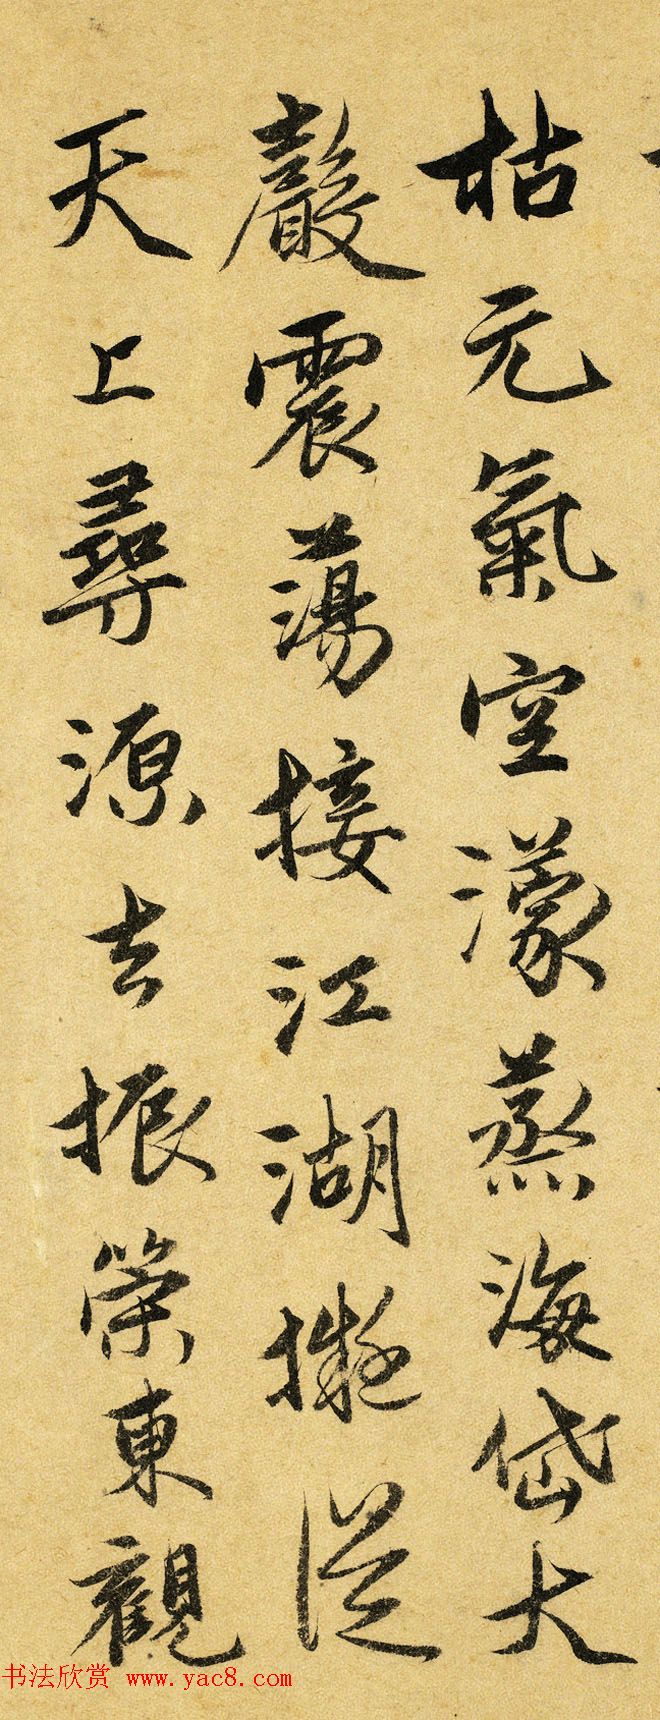 枯元氣空濛蒸海岱大
聲震蕩接江湖擬從
天上尋源去振策東觀
书法欣赏 www.yac8.com